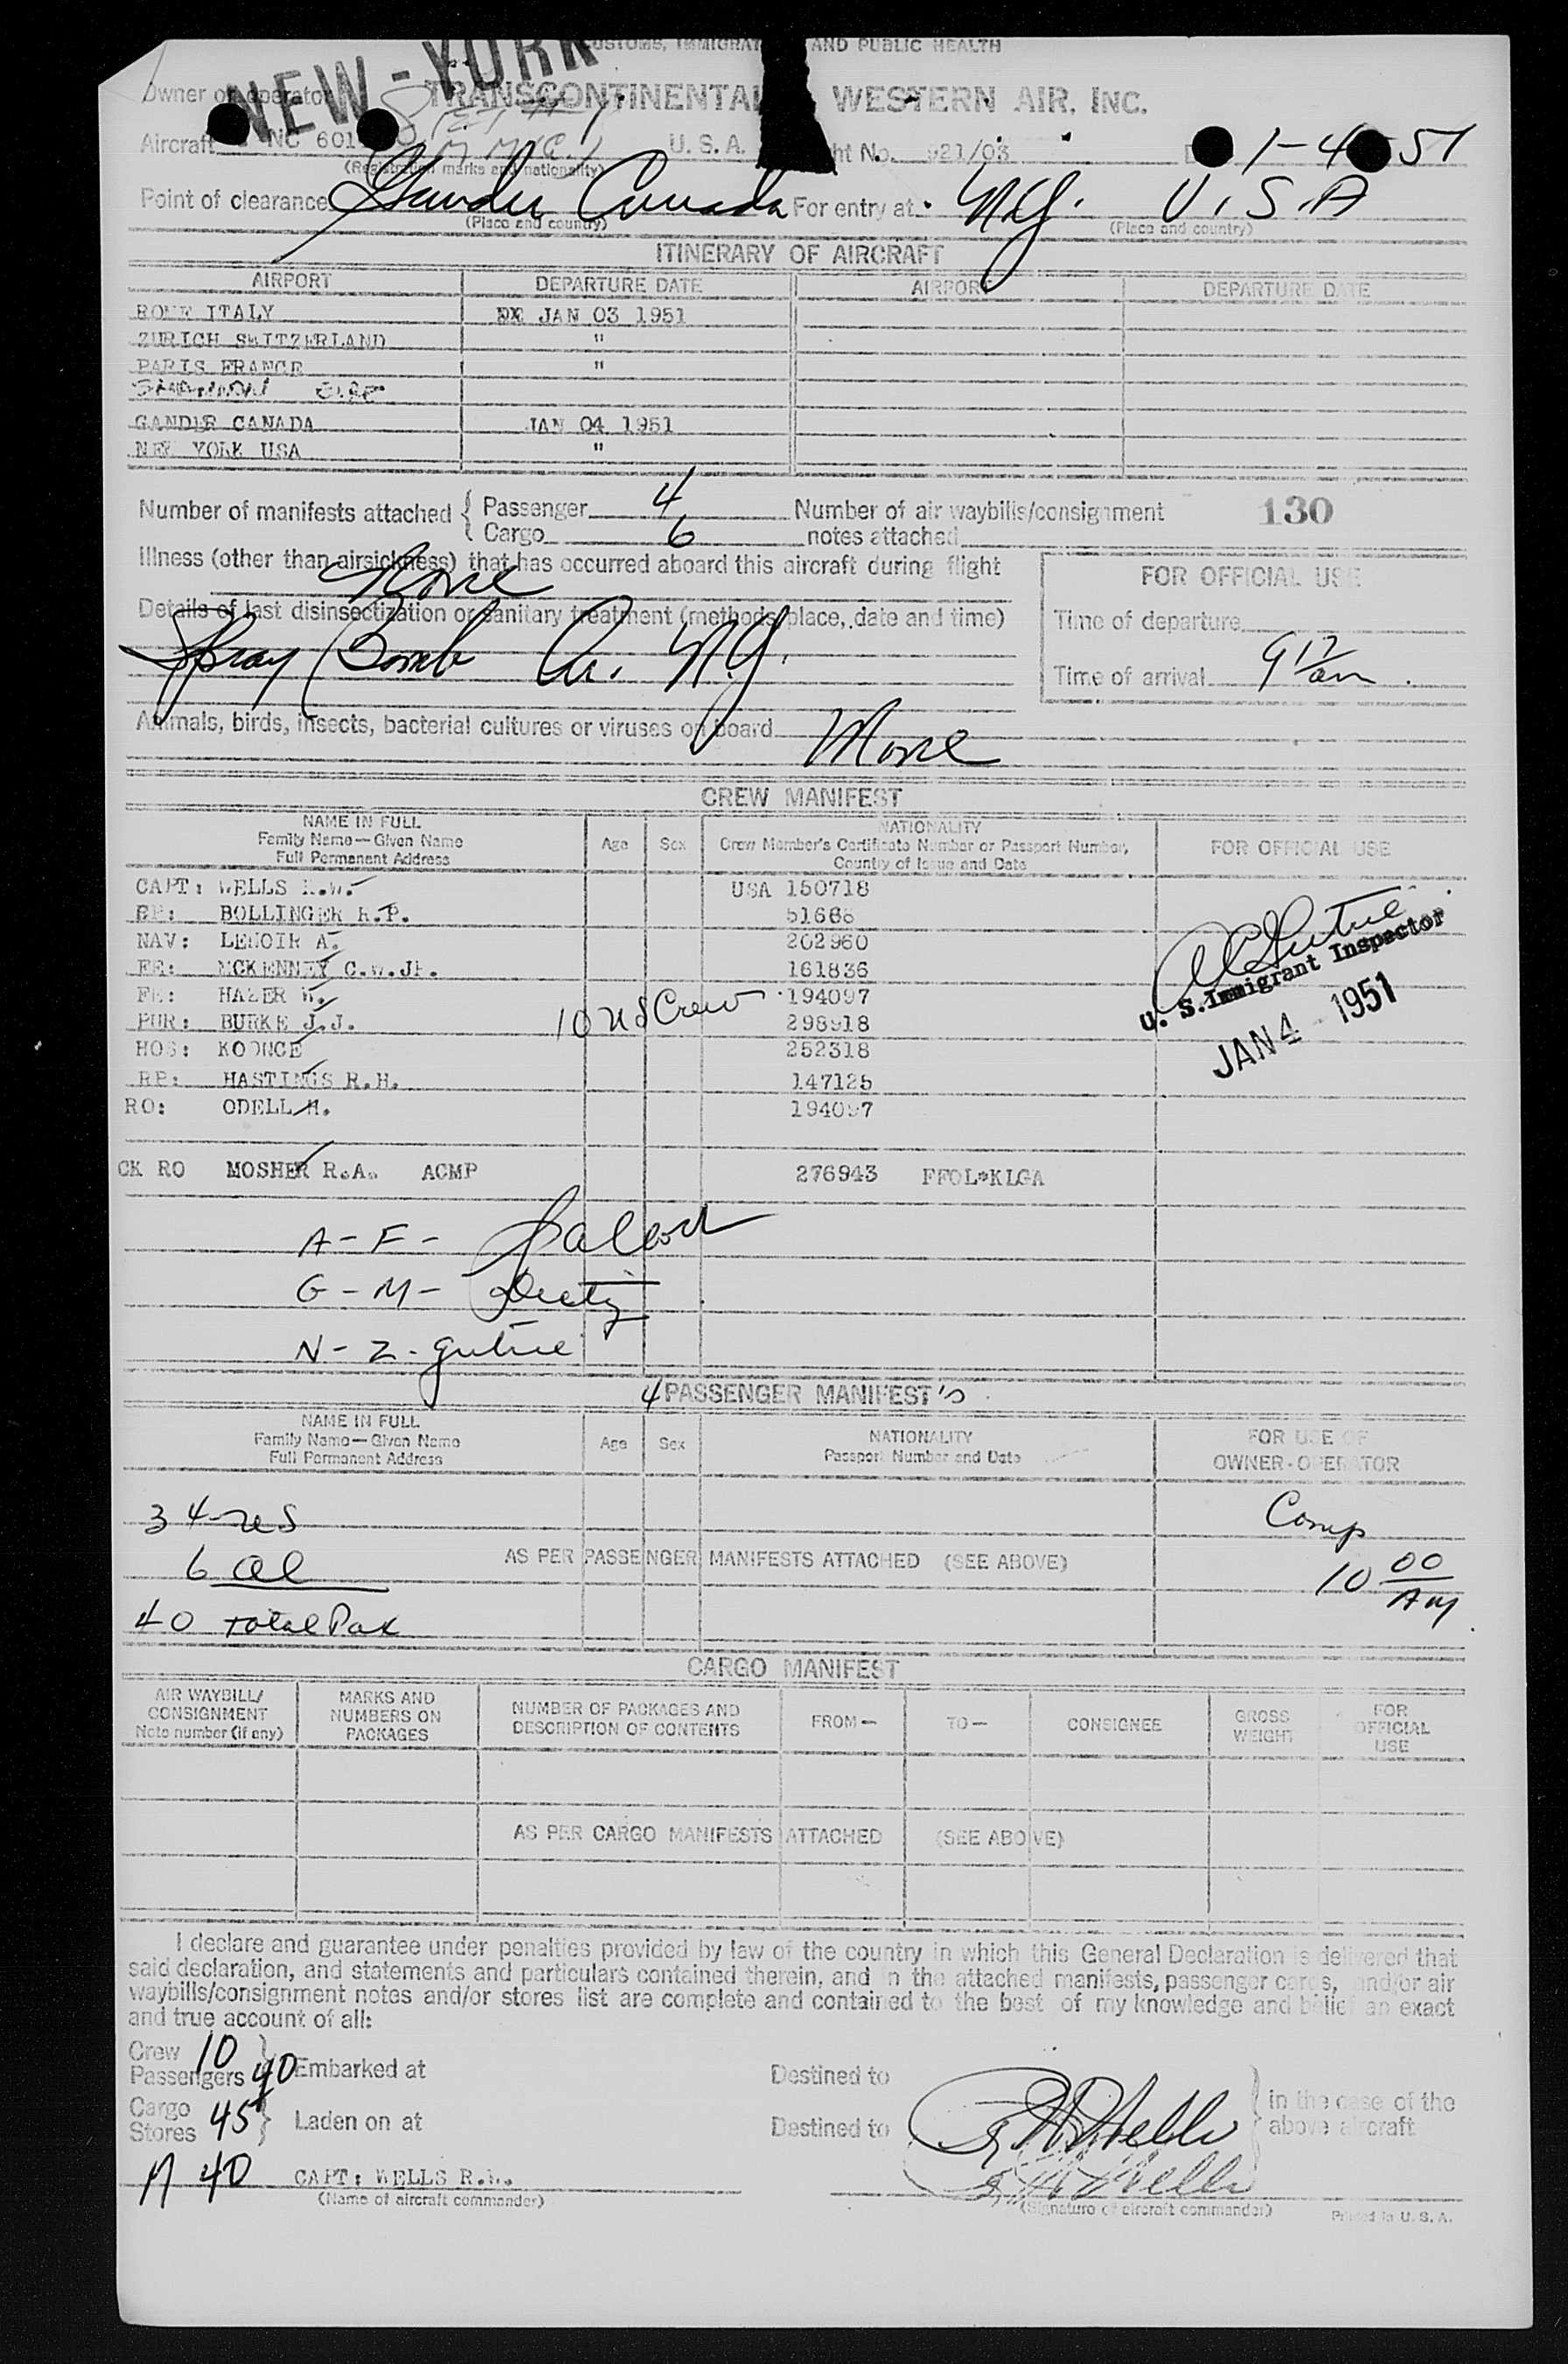 NEW-YORK
CUSTOMS, IMMIGRAT AND PUBLIC HEALTH
Owner or operator TRANSCONTINENTAL WESTERN AIR, INC.
Aircraft NC 601 U.S.A. ht No. 921/03 1-4 51
(Registration marks and nationality)
Point of clearance Gander Canada For entry at N.Y. U.S.A
(Place and country) (Place and country)
ITINERARY OF AIRCRAFT
AIRPORT DEPARTURE DATE AIRPORT DEPARTURE DATE
ROME ITALY JAN 03 1951
ZURICH SWITZERLAND "
PARIS FRANCE "
GANDER CANADA JAN 04 1951
NEW YORK USA "
Number of manifests attached { Passenger 4 Number of air waybills/consignment 130
Cargo 6 notes attached
Illness (other than airsickness) that has occurred aboard this aircraft during flight
None
FOR OFFICIAL USE
Details of last disinsectization or sanitary treatment (methods, place, date and time)
Time of departure
Spray Bomb Ar. N.Y.
Time of arrival 9 17/am
Animals, birds, insects, bacterial cultures or viruses on board None
CREW MANIFEST
NAME IN FULL
Family Name—Given Name
Full Permanent Address
Age Sex
NATIONALITY
Crew Member's Certificate Number or Passport Number,
Country of Issue and Date
FOR OFFICIAL USE
CAPT: WELLS R.W. USA 150718
BOLLINGER R.P. 51668
NAV: LENOIR A. 202960
FE: MCKENNEY C.W.JR. 161836
FE: HAZER W. 194097
PUR: BURKE J.J. 298918
10 US Crew
HOS: KOONCE 252318
RP: HASTINGS R.H. 147125
RO: ODELL H. 194097
CK RO MOSHER R.A. ACMP 276943 FFOL*KLGA
U. S. Immigrant Inspector
JAN 4 1951
A-F-
G-M-
N-Z- Gutrie
4 PASSENGER MANIFEST's
NAME IN FULL
Family Name—Given Name
Full Permanent Address
Age Sex
NATIONALITY
Passport Number and Date
FOR USE OF
OWNER-OPERATOR
34 US Comp
6 al AS PER PASSENGER MANIFESTS ATTACHED (SEE ABOVE) 10 00 AM
40 total Pax
CARGO MANIFEST
AIR WAYBILL/
CONSIGNMENT
Note number (if any)
MARKS AND
NUMBERS ON
PACKAGES
NUMBER OF PACKAGES AND
DESCRIPTION OF CONTENTS
FROM— TO— CONSIGNEE
GROSS
WEIGHT
FOR
OFFICIAL
USE
AS PER CARGO MANIFESTS ATTACHED (SEE ABOVE)
I declare and guarantee under penalties provided by law of the country in which this General Declaration is delivered that
said declaration, and statements and particulars contained therein, and in the attached manifests, passenger cards, and/or air
waybills/consignment notes and/or stores list are complete and contained to the best of my knowledge and belief an exact
and true account of all:
Crew 10
Passengers 40 } Embarked at Destined to
Cargo
Stores 45 } Laden on at Destined to
in the case of the
above aircraft
R W Wells
A 40 CAPT: WELLS R.W. R W Wells
(Name of aircraft commander) (Signature of aircraft commander) Printed in U. S. A.